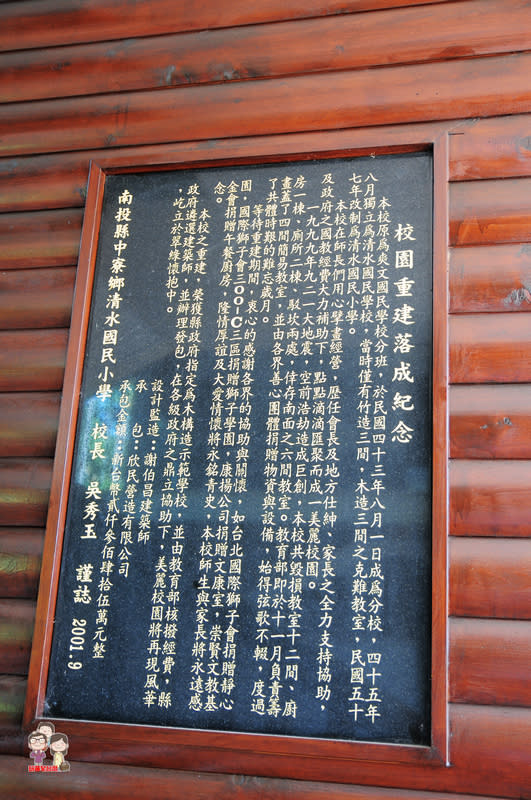 校園重建落成紀念
本校原為爽文國民學校分班，於民國四十三年八月一日成為分校，四十五年
八月獨立為清水國民學校，當時僅有竹造三間，木造三間之克難教室，民國五十
七年改制為清水國民小學。
本校在師長們用心擘畫經營，歷任會長及地方仕紳、家長之全力支持協助，
及政府之國教經費大力補助下，點點滴滴匯聚而成一美麗校園。
一九九九年九二一大地震，空前浩劫造成巨創，本校共毀損教室十二間、廚
房一棟、廁所二棟、駁坎兩處，倖存南面之六間教室。教育部即於十一月負責籌
畫蓋了四間簡易教室，並由各界善心團體捐贈物資與設備，始得弦歌不輟，度過
了共體時艱的難忘歲月。
等待重建期間，衷心的感謝各界的協助與關懷，如台北國際獅子會捐贈靜心
園，國際獅子會三００－Ｃ三區捐贈獅子學園，康揚公司捐贈文康室，崇賢文教基
金會捐贈午餐廚房，隆情厚誼及大愛情懷將永銘青史，本校師生與家長將永遠感
念。
本校之重建，榮獲縣政府指定為木構造示範學校，並由教育部核撥經費，縣
政府遴選建築師，並辦理發包，在各級政府之鼎立協助下，美麗校園將再現風華
，屹立於翠綠懷抱中。
設計監造：謝伯昌建築師
承　　包：欣民營造有限公司
承包金額：新台幣貳仟參佰肆拾伍萬元整
南投縣中寮鄉清水國民小學 校長 吳秀玉 謹誌 2001.9